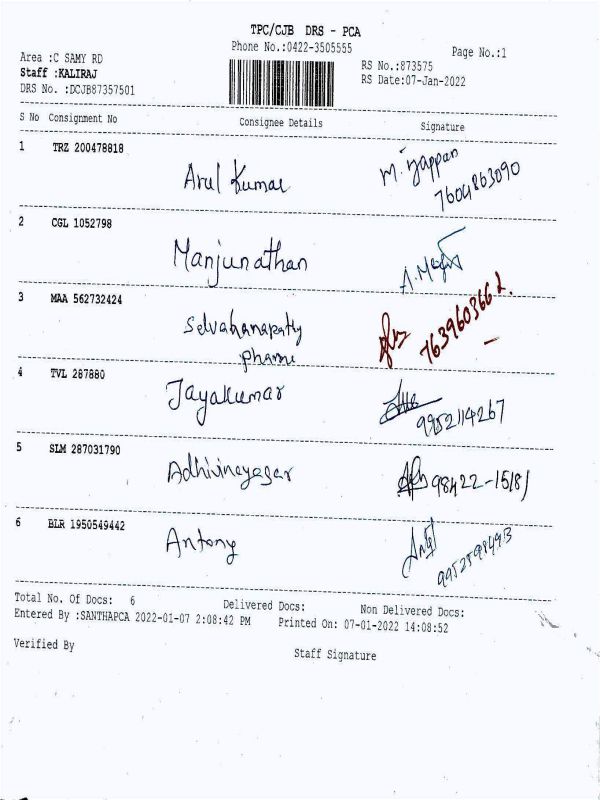 TPC/CJB DRS - PCA
Phone No.:0422-3505555
Page No.:1
Area :C SAMY RD
RS No.:873575
Staff :KALIRAJ
RS Date:07-Jan-2022
DRS No. :DCJB87357501
S No Consignment No Consignee Details Signature
1 TRZ 200478818
Arul Kumar
7604863090
2 CGL 1052798
Manjunathan
3 MAA 562732424
7639603662.
4 TVL 287880
Jayakumar
9952114267
5 SLM 287031790
Adhivinayagar
98422-15181
6 BLR 1950549442
Antony
Total No. Of Docs: 6 Delivered Docs: Non Delivered Docs:
Entered By :SANTHAPCA 2022-01-07 2:08:42 PM Printed On: 07-01-2022 14:08:52
Verified By
Staff Signature